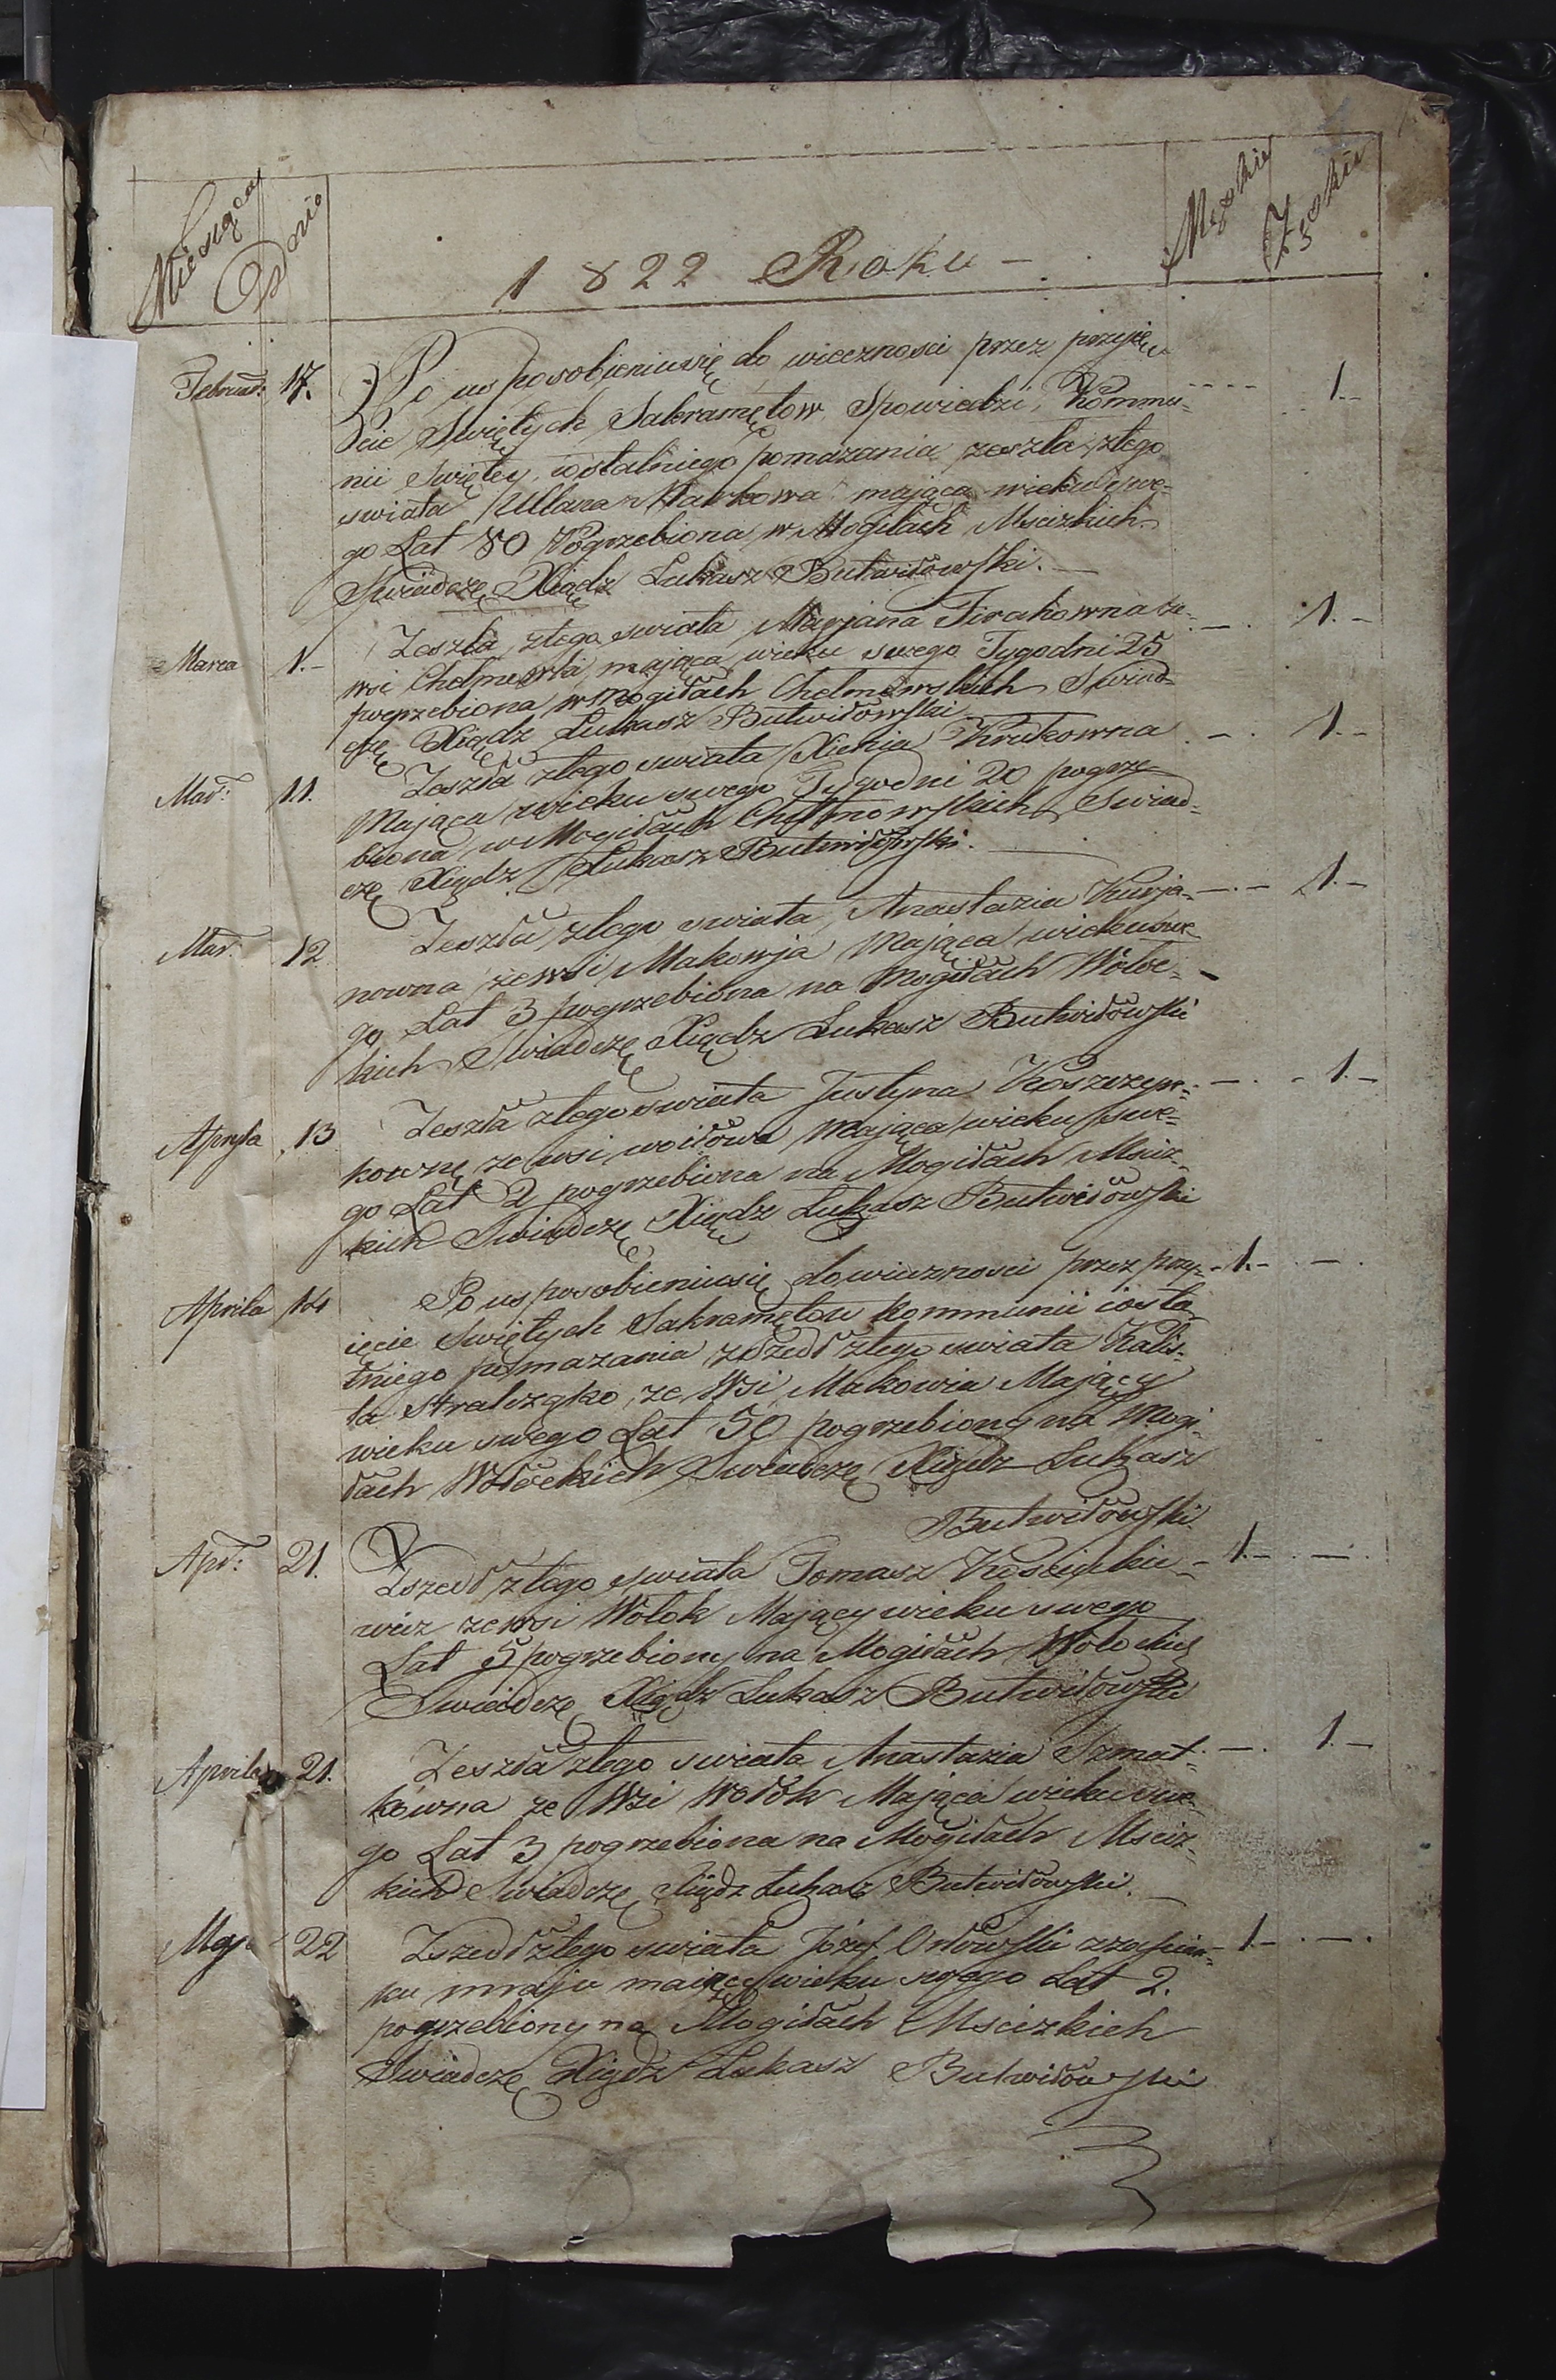 Miesąca Dnia 1822 Roku Męzkie Żeńskie
Februar: 17. Po usposobieniu się do wieczności przez przyję- 1.
cie Swiętych Sakramętow Spowiedzi, Kommu-
nii Swiętey, i ostatniego pomazania zeszła z tego
swiata Ullana Hawkowa mająca wieku swe-
go Lat 80 Pogrzebiona w Mogiłach Mscizkich
Swiadczę Xiądz Łukasz Butwiłowski.
Marca 1. Zeszła z tego swiata Maryana ze 1.
wsi Chełmowki mająca wieku swego Tygodni 25
pogrzebiona w Mogiłach Chełmowskich Swiad-
czę Xiądz Łukasz Butwiłowski
Mar: 11. Zeszła z tego swiata Xienia Krukowna 1.
Mająca wieku swego Tygodni 20 pogrze
biona w Mogiłach Chełmowskich Swiad-
czę Xiądz Łukasz Butwiłowski.
Mar. 12 Zeszła z tego swiata Anastazia Kurja- 1.
nowna ze wsi Makowja Mająca wieku swe
go Lat 3 pogrzebiona na Mogiłach Wołoc-
kich Swiadczę Xiądz Łukasz Butwiłowski
Apryla 13 Zeszła z tego swiata Justyna 1.
kownę ze wsi Mająca wieku swe-
go Lat 2 pogrzebiona na Mogiłach Msciz-
kich Swiadczę Xiądz Łukasz Butwiłowski
Aprila 14 Po usposobieniu się do wieczności przez przy- 1.
ięcie Swiętych Sakramętow Kommunii i osta
tniego pomazania zszedł z tego swiata Kalis-
ta Stralcząko ze Wsi Makowia Mający
wieku swego Lat 50 pogrzebiony na Mogi-
łach Wołockich Swiadczę Xiądz Łukasz
Butwiłowski.
Apr: 21. Zszedł z tego swiata Tomasz Kościukie- 1.
wicz ze wsi Wołok Mający wieku swego
Lat 5 pogrzebiony na Mogiłach Wołockich
Swiadczę Xiądz Łukasz Butwiłowski
Aprila 21. Zeszła z tego swiata Anastazia Szmat- 1.
kowna ze Wsi Wołok Mająca wieku swe-
go Lat 3 pogrzebiona na Mogiłach Msciz-
kich Swiadczę Xiądz Łukasz Butwiłowski.
Maja 22 Zszedł z tego swiata Józef Orłowski z zascian- 1.
ku maiący wieku swego Lat 2.
pogrzebiony na Mogiłach Mscizkich
Swiadczę Xiądz Łukasz Butwiłowski